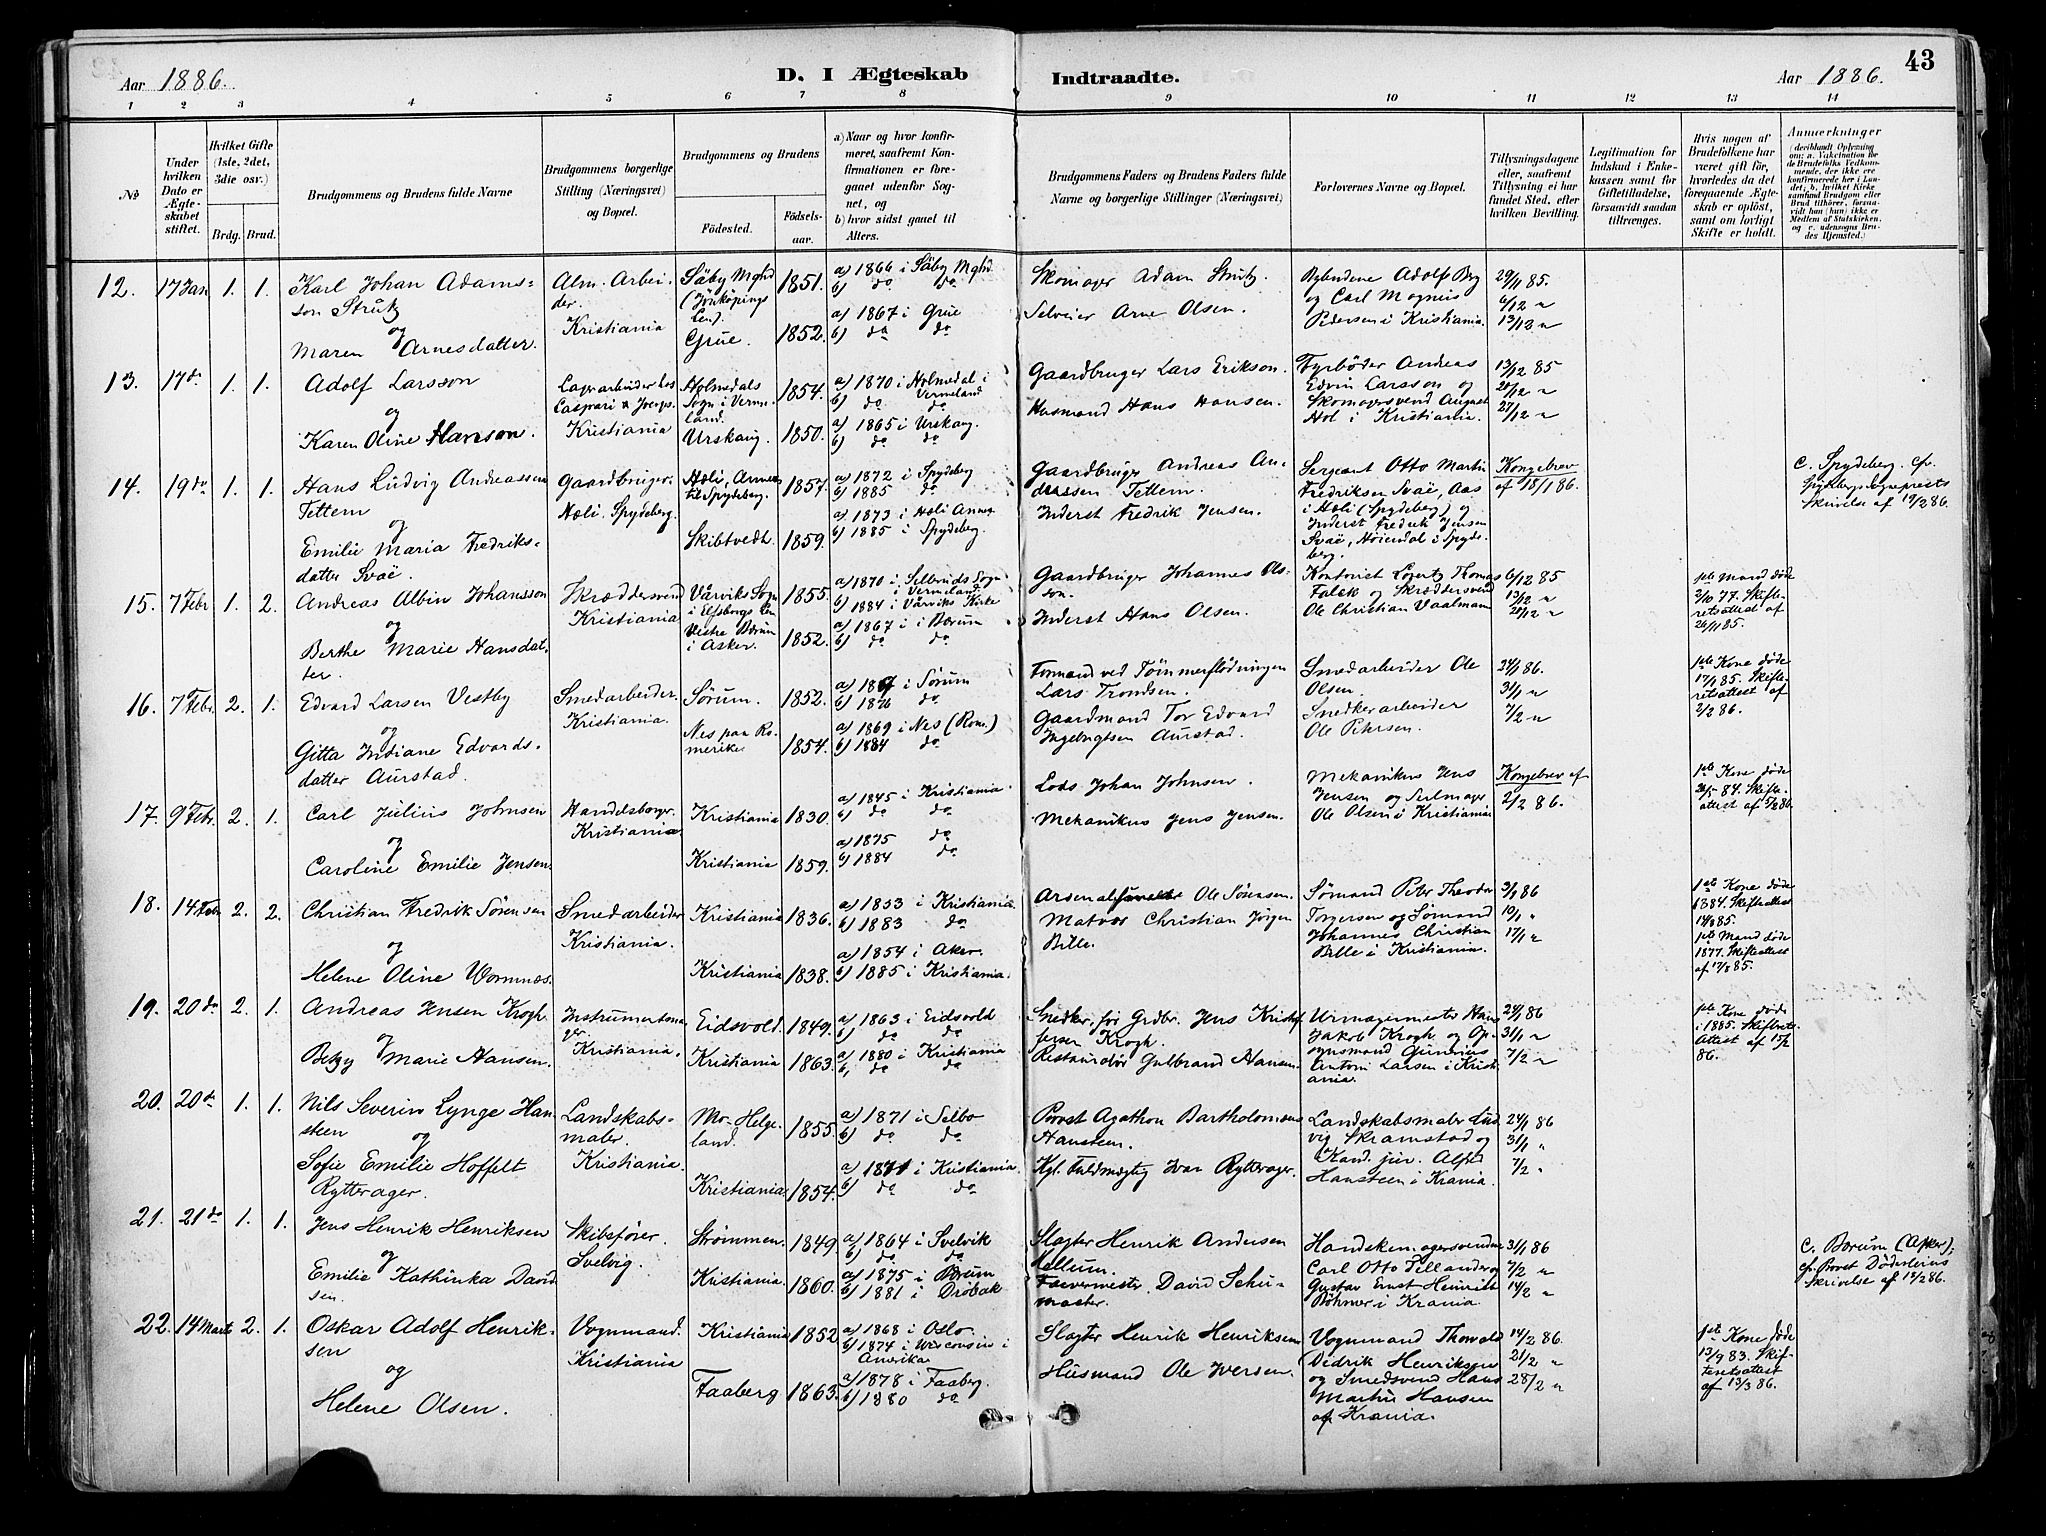 Aar 1886.
D. I Ægteskab
Indtraadte.
Aar 1886.
43
1 2 3 4 5 6 7 8 9 10 11 12 13 14
No
Under hvilken Dato er Ægteskabet stiftet.
Hvilket Gifte (1ste, 2det, 3die osv.)
Brdg. Brud.
Brudgommens og Brudens fulde Navne
Brudgommens borgerlige Stilling (Næringsvei) og Bopæl.
Brudgommens og Brudens
Fødested.
Fødselsaar.
a) Naar og hvor konfirmeret, saafremt Konfirmationen er foregaaet udenfor Sognet, og
b) hvor sidst gaaet til Alters.
Brudgommens Faders og Brudens Faders fulde Navne og borgerlige Stillinger (Næringsvei)
Forlovernes Navne og Bopæl.
Tillysningsdagene eller, saafremt Tillysning ei har fundet Sted, efter hvilken Bevilling.
Legitimation for Indskud i Enkekassen samt for Giftetilladelse, forsaavidt saadan tiltrænges.
Hvis nogen af Brudefolkene har været gift før, hvorledes da det foregaaende Ægteskab er opløst, samt om lovligt Skifte er holdt.
Anmærkninger (deriblandt Oplysning om: a. Vakcination for de Brudefolks Vedkommende, der ikke ere konfirmerede her i Landet; b. hvilket Kirkesamfund Brudgom eller Brud tilhører, forsaavidt han (hun) ikke er Medlem af Statskirken, og c. udensogns Brudes Hjemsted.)
12. 17 Jan 1. 1.
Karl Johan Adamsson Strutz
og
Maren Arnesdatter.
Alm. Arbeider.
Kristiania
Säby Mghd (Jönköpings Len).
Grue.
1851.
1852.
a) 1866 i Säby Mghd.
b) do do
a) 1867 i Grue
b) do do
Skomager Adam Strutz.
Selveier Arne Olsen.
Adolf Berg
og Carl Magnus
Pedersen i Kristiania.
29/11 85.
6/12 "
13/12 "
13. 17 do 1. 1.
Adolf Larsson
og
Karen Oline Hanson.
Lagerarbeider hos
Kristiania
Holmedals Sogn i Vermeland.
Urskaug.
1854.
1850.
a) 1870 i Holmedal i Vermeland
b) do do
a) 1865 i Urskaug.
b) do do
Gaardbruger Lars Erikson.
Husmand Hans Hansen.
Fyrbøder Andreas
Edvin Larsson og
Skomagersvend August
Hol i Kristiania.
13/12 85
20/12 "
27/12 "
14. 19 do 1. 1.
Hans Ludvig Andreassen
Tettem
og
Emilie Maria Fredriksdatter Svae.
Gaardbruger.
Hæli, Spydeberg.
Hæli, Annex til Spydeberg.
Skibtvedt.
1857.
1859.
a) 1872 i Spydeberg
b) 1885 do
a) 1873 i Hæli Annex
b) 1885 i Spydeberg.
Gaardbruger Andreas Andreassen Tettem.
Inderst Fredrik Jensen.
Sergeant Otto Martin
Fredriksen Svae, Aas
i Hæli (Spydeberg) og
Inderst Fredrik Jensen
Svae, Høiendal i Spydeberg.
Kongebrev
af 18/1 86.
c. Spydeberg. cfr.
Spydebergs Sognepræsts
Skrivelse af 19/2 86.
15. 7 Febr 1. 2.
Andreas Albin Johansson
og
Berthe Marie Hansdatter.
Skræddersvend
Kristiania
Vårviks Sogn i Elfsborgs Len
Vestre Bærum i Asker.
1855.
1852.
a) 1870 i Sogn i Vermeland.
b) 1884 i Vårviks Kirke
a) 1867 i Bærum
b) do do
Gaardbruger Johannes Olson.
Inderst Hans Olsen.
Kontorist Thomas
Falck og Skræddersvend
Ole Christian Vaalmann
6/12 85
13/12 "
20/12 "
1ste Mand døde
2/10 77. Skifteretsattest af
26/11 85.
16. 7 Febr. 2. 1.
Edvard Larsen Vestby
og
Gitta Indiane Edvardsdatter Aurstad.
Smedarbeider.
Kristiania.
Sørum.
Nes paa Romerike
1852.
1854.
a) 1867 i Sørum
b) 1876 do
a) 1869 i Nes (Rom.)
b) 1884 do
Formand ved Tømmerflødningen
Lars Trondsen.
Gaardmand Tor Edvard
Ingebrigtsen Aurstad.
Smedarbeider Ole
Olsen.
Snedkerarbeider
Ole Petersen.
24/1 86.
31/1 "
7/2 "
1ste Kone døde
17/1 85. Skifteretsattest af
2/2 86.
17. 9 Febr. 2. 1.
Carl Julius Johnsen
og
Caroline Emilie Jensen.
Handelsborger.
Kristiania
Kristiania
Kristiania
1830.
1859.
a) 1845 i Kristiania.
b) do do
a) 1875 do
b) 1884 do
Lods Johan Johnsen.
Mekanikus Jens Jensen.
Mekanikus Jens
Jensen og Seilmager
Ole Olsen i Kristiania
Kongebrev af
2/2 86.
1ste Kone døde
84. Skifteattest af 5/2 86.
18. 14 Febr. 2. 2.
Christian Fredrik Sørensen
og
Helene Oline Wormnæs.
Smedarbeider
Kristiania.
Kristiania
Kristiania
1836.
1838.
a) 1853 i Kristiania.
b) 1883 do
a) 1854 i Aker.
b) 1885 i Kristiania.
Ole Sørensen.
Matros Christian Jørgen
Bille.
Sømand Peter Theodor
Torgersen og Sømand
Johannes Christian
Bille i Kristiania.
3/1 86
10/1 "
17/1 "
1ste Kone døde
1884. Skifteattest
14/8 85.
1ste Mand døde
1877. Skifteattest
af 17/8 85.
19. 20 do 2. 1.
Andreas Jensen Krogh
og
Betzy Marie Hansen.
Instrumentmager
Kristiania.
Eidsvold.
Kristiania
1849.
1863.
a) 1863 i Eidsvold
b) do do
a) 1880 i Kristiania
b) do do
Snedker, før Grdbr. Jens Kristofersen Krogh.
Restauratør Gulbrand Hansen.
Urmagermester Hans
Jakob Krogh og Opsynsmand Gunerius
Antoni Larsen i Kristiania.
24/1 86
31/1 "
7/2 "
1ste Kone døde
i 1885. Skifterets Attest af 15/2
86.
20. 20 do 1. 1.
Nils Severin Lynge Hansteen
og
Sofie Emilie Hoffelt
Rytterager.
Landskabsmaler.
Kristiania.
Mo-Helgeland.
Kristiania
1855.
1854.
a) 1871 i Selbo
b) do do
a) 1871 i Kristiania.
b) do do
Provst Agathon Bartholomæus
Hansteen.
Kgl. Fuldmægtig Ivar Rytterager.
Landskabsmaler Ludvig Skramstad og
Kand. jur. Alfred
Hansteen i Krania.
24/1 86
31/1 "
7/2 "
21. 21 do 1. 1.
Jens Henrik Henriksen
og
Emilie Kathinka Davidsen.
Skibsfører.
Svelvig.
Strømmen.
Kristiania.
1849.
1860.
a) 1864 i Svelvik
b) do do
a) 1875 i Bærum
b) 1881 i Drøbak
Slagter Henrik Andersen
Hellum.
Farvermester David Schumacher.
Handskemagersvendene
Carl Otto Tellander og
Gustav Ernst Heinrich
Böhmer i Krania.
31/1 86
7/2 "
14/2 "
c. Bærum (Asker);
cfr. Provst Døderleins
Skrivelse af 12/2 86.
22. 14 Marts 2. 1.
Oskar Adolf Henriksen
og
Helene Olsen.
Vognmand.
Kristiania
Kristiania
Faaberg
1852
1863.
a) 1868 i Oslo.
b) 1874 i Wisconsin i Amerika
a) 1878 i Faaberg.
b) 1880 do
Slagter Henrik Henriksen
Husmand Ole Iversen.
Vognmand Thorvald
Didrik Henriksen
og Smedsvend Hans
Martin Hansen
af Krania.
14/2 86.
21/2 "
28/2 "
1ste Kone døde
13/9 83. Skifteretsattest
af 13/3 86.